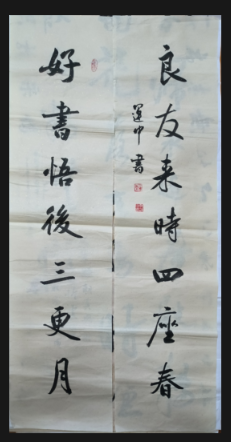 良友来時四座春
好書悟後三更月
運中書